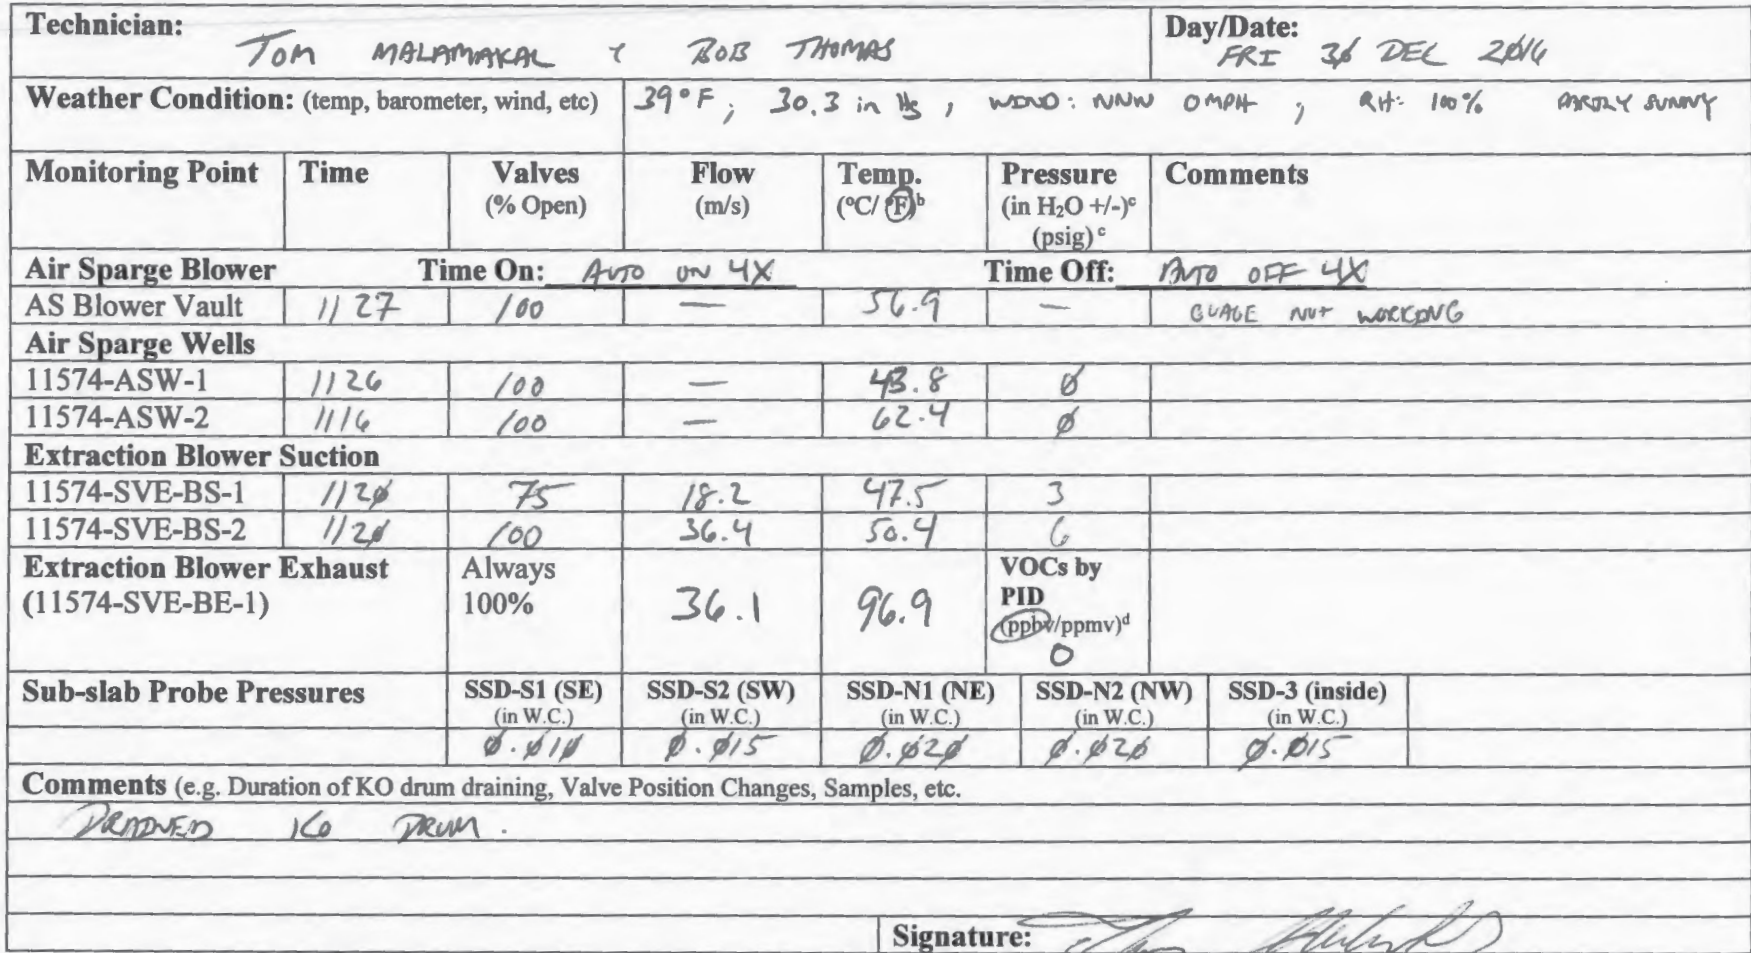 Technician: TOM MALAMAKAL & BOB THOMAS
Day/Date: FRI 30 DEC 2016
Weather Condition: (temp, barometer, wind, etc) 39°F; 30.3 in Hg, WIND: NNW 0 MPH; RH: 100% PARTLY SUNNY
Monitoring Point Time Valves (% Open) Flow (m/s) Temp. (°C/°F)b Pressure (in H₂O +/-)c (psig) c Comments
Air Sparge Blower Time On: AUTO ON 4X Time Off: AUTO OFF 4X
AS Blower Vault 1127 100 — 56.9 — GUAGE NOT WORKING
Air Sparge Wells
11574-ASW-1 1126 100 — 43.8 0
11574-ASW-2 1116 100 — 62.4 0
Extraction Blower Suction
11574-SVE-BS-1 1120 75 18.2 47.5 3
11574-SVE-BS-2 1120 100 36.4 50.4 6
Extraction Blower Exhaust (11574-SVE-BE-1) Always 100% 36.1 96.9 VOCs by PID (ppbv/ppmv)d 0
Sub-slab Probe Pressures SSD-S1 (SE) (in W.C.) SSD-S2 (SW) (in W.C.) SSD-N1 (NE) (in W.C.) SSD-N2 (NW) (in W.C.) SSD-3 (inside) (in W.C.)
0.010 0.015 0.020 0.020 0.015
Comments (e.g. Duration of KO drum draining, Valve Position Changes, Samples, etc.
DRAINED KO DRUM.
Signature: